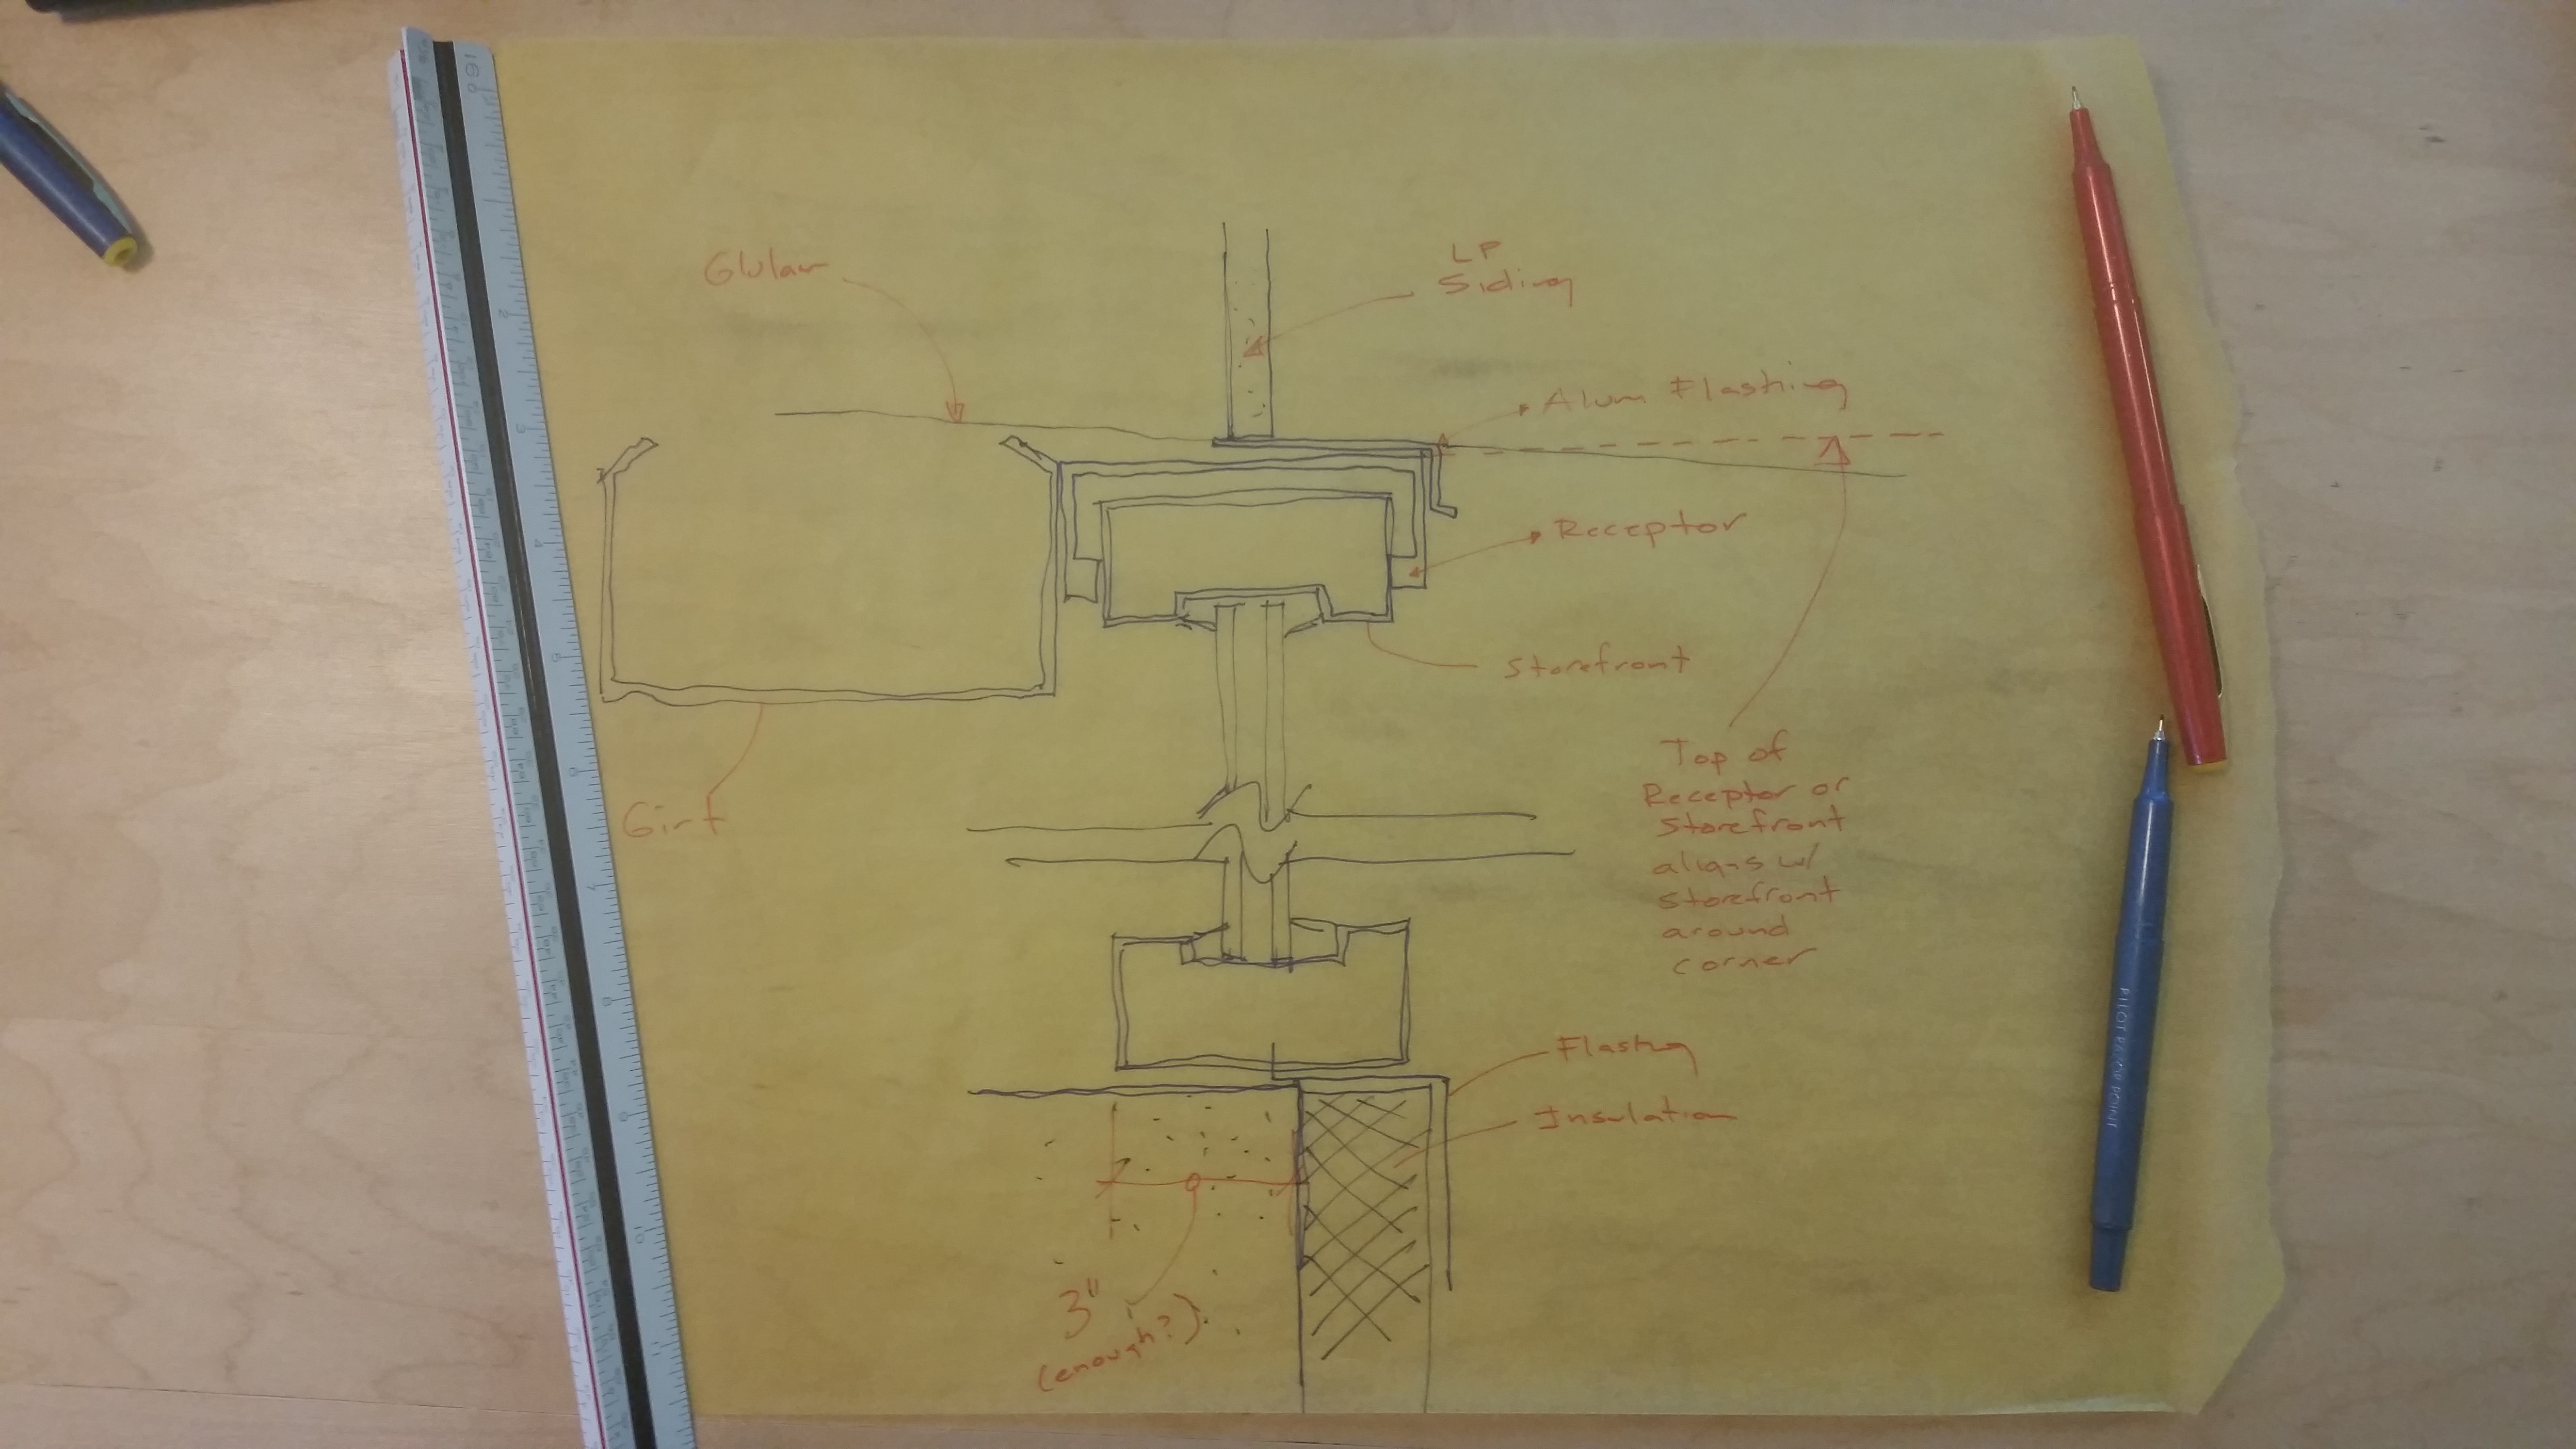 Glulam
LP
Siding
Alum Flashing
Receptor
Storefront
Girt
Top of
Receptor or
Storefront
aligns w/
storefront
around
corner
Flashing
Insulation
3"
(enough?)
PILOT RAZOR POINT
16